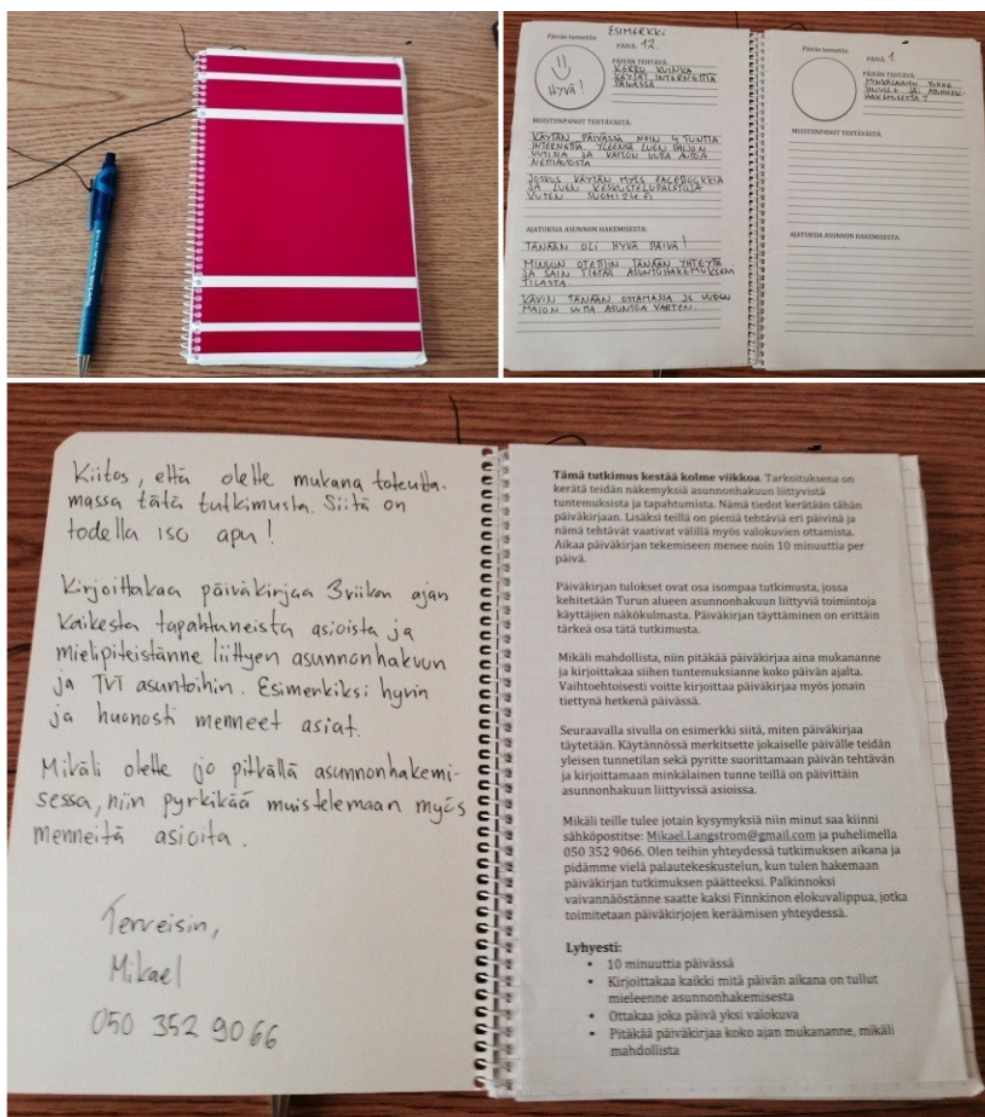 ESIMERKKI
Päivän tunnetila:
PÄIVÄ: 12.
HYVÄ!
PÄIVÄN TEHTÄVÄ:
KERRO KUINKA
KÄYTÄT INTERNETTIÄ
PÄIVÄSSÄ
MUISTIINPANOT TEHTÄVÄSTÄ:
KÄYTÄN PÄIVÄSSÄ NOIN 4 TUNTIA
INTERNETTIÄ. YLEENSÄ LUEN PALJON
UUTISIA JA KATSON UUTTA AUTOA
NETTIAUTOSTA
JOSKUS KÄYTÄN MYÖS FACEBOOKKIA
JA LUEN KESKUSTELUPALSTOJA
KUTEN SUOMI24.FI
AJATUKSIA ASUNNON HAKEMISESTA:
TÄNÄÄN OLI HYVÄ PÄIVÄ!
MINUUN OTETTIIN TÄNÄÄN YHTEYTTÄ
JA SAIN TIETÄÄ ASUNTOHAKEMUKSENI
TILASTA.
KÄVIN TÄNÄÄN OSTAMASSA JO UUDEN
MATON UUTTA ASUNTOA VARTEN.
Päivän tunnetila:
PÄIVÄ: 1.
PÄIVÄN TEHTÄVÄ:
MINKÄLAINEN TUNNE
SINULLE JÄI ASUNNON
HAKEMISESTA?
MUISTIINPANOT TEHTÄVÄSTÄ:
AJATUKSIA ASUNNON HAKEMISESTA:
Kiitos, että olette mukana toteutta-
massa tätä tutkimusta. Siitä on
todella iso apu!
Kirjoittakaa päiväkirjaa 3 viikon ajan
kaikesta tapahtuneista asioista ja
mielipiteistänne liittyen asunnonhakuun
ja TVT asuntoihin. Esimerkiksi hyvin
ja huonosti menneet asiat.
Mikäli olette jo pitkällä asunnonhakemi-
sessa, niin pyrkikää muistelemaan myös
menneitä asioita.
Terveisin,
Mikael
050 352 9066
Tämä tutkimus kestää kolme viikkoa. Tarkoituksena on
kerätä teidän näkemyksiä asunnonhakuun liittyvistä
tuntemuksista ja tapahtumista. Nämä tiedot kerätään tähän
päiväkirjaan. Lisäksi teillä on pieniä tehtäviä eri päivinä ja
nämä tehtävät vaativat välillä myös valokuvien ottamista.
Aikaa päiväkirjan tekemiseen menee noin 10 minuuttia per
päivä.
Päiväkirjan tulokset ovat osa isompaa tutkimusta, jossa
kehitetään Turun alueen asunnonhakuun liittyviä toimintoja
käyttäjien näkökulmasta. Päiväkirjan täyttäminen on erittäin
tärkeä osa tätä tutkimusta.
Mikäli mahdollista, niin pitäkää päiväkirjaa aina mukananne
ja kirjoittakaa siihen tuntemuksianne koko päivän ajalta.
Vaihtoehtoisesti voitte kirjoittaa päiväkirjaa myös jonain
tiettynä hetkenä päivässä.
Seuraavalla sivulla on esimerkki siitä, miten päiväkirjaa
täytetään. Käytännössä merkitsette jokaiselle päivälle teidän
yleisen tunnetilan sekä pyritte suorittamaan päivän tehtävän
ja kirjoittamaan minkälainen tunne teillä on päivittäin
asunnonhakuun liittyvissä asioissa.
Mikäli teille tulee jotain kysymyksiä niin minut saa kiinni
sähköpostitse: Mikael.Langstrom@gmail.com ja puhelimella
050 352 9066. Olen teihin yhteydessä tutkimuksen aikana ja
pidämme vielä palautekeskustelun, kun tulen hakemaan
päiväkirjan tutkimuksen päätteeksi. Palkinnoksi
vaivannäöstänne saatte kaksi Finnkinon elokuvalippua, jotka
toimitetaan päiväkirjojen keräämisen yhteydessä.
Lyhyesti:
• 10 minuuttia päivässä
• Kirjoittakaa kaikki mitä päivän aikana on tullut
mieleenne asunnonhakemisesta
• Ottakaa joka päivä yksi valokuva
• Pitäkää päiväkirjaa koko ajan mukananne, mikäli
mahdollista